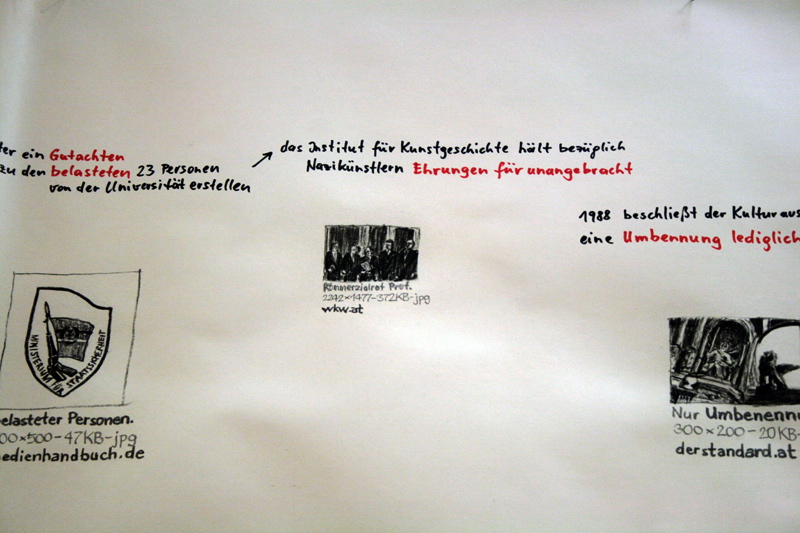 ter ein Gutachten
zu den belasteten 23 Personen
von der Universität erstellen
das Institut für Kunstgeschichte hält bezüglich
Nazikünstlern Ehrungen für unangebracht
1988 beschließt der Kulturaus
eine Umbennung lediglich
MINISTERIUM FÜR STAATSSICHERHEIT
elasteter Personen.
00×500-47KB-jpg
edienhandbuch.de
Kommerzialrat Prof.
2242×1477-372KB-jpg
wkw.at
Nur Umbenennu
300×200-20KB-
derstandard.at